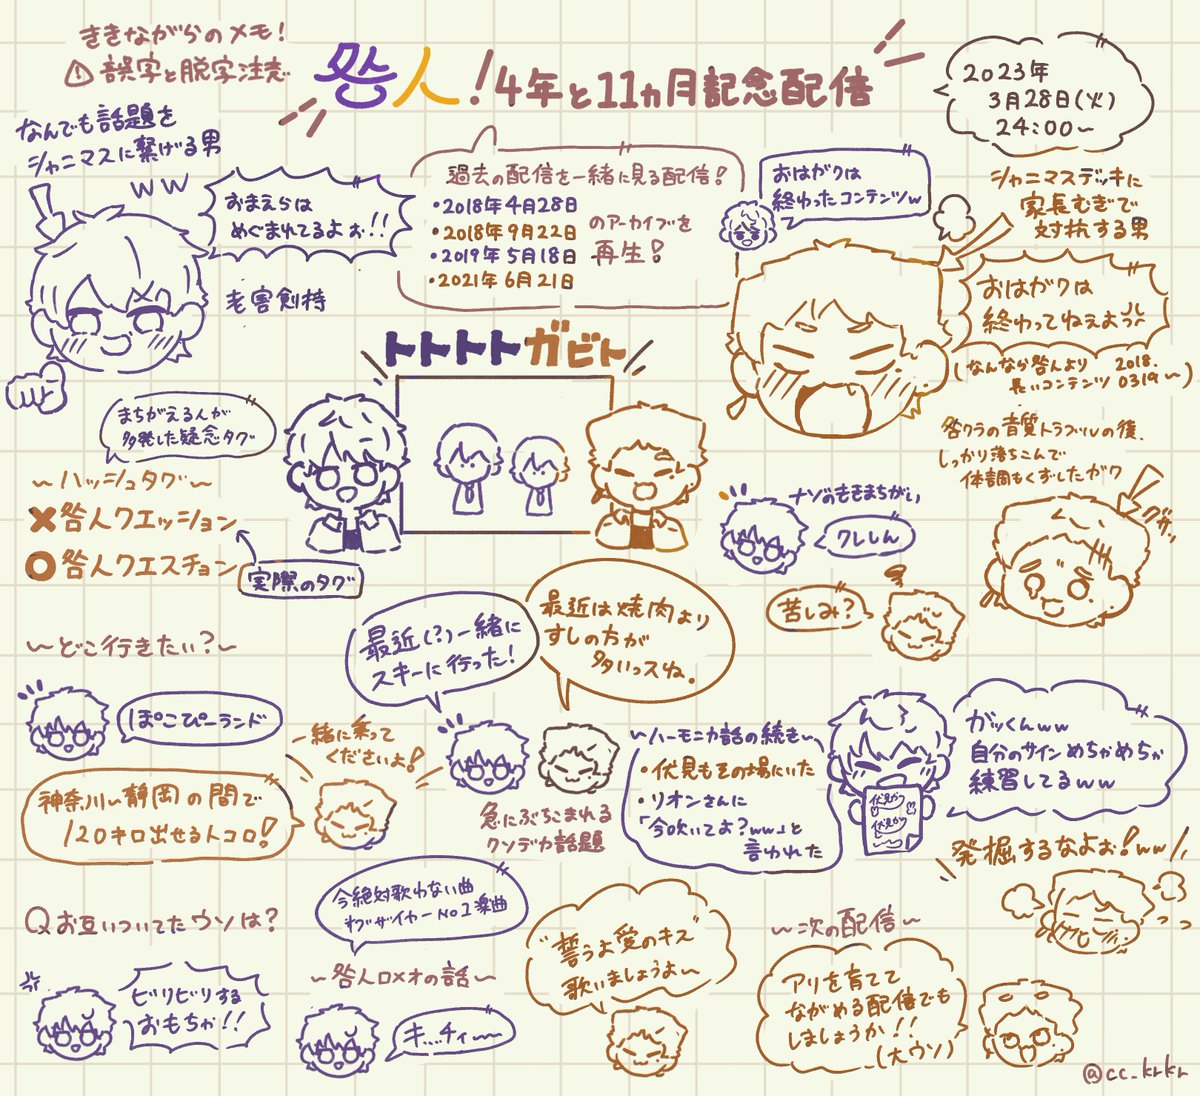 ききながらのメモ!
⚠誤字と脱字注意
咎人!4年と11ヵ月記念配信
2023年
3月28日(火)
24:00〜
なんでも話題を
シャニマスに繋げる男
ww
おまえらは
めぐまれてるよぉ!!
老害剣持
過去の配信を一緒に見る配信!
・2018年4月28日
・2018年9月22日
・2019年5月18日
・2021年6月21日
のアーカイブを
再生!
おはガクは
終わったコンテンツw
シャニマスデッキに
家長むぎで
対抗する男
おはガクは
終わってねえよぅ
(なんなら咎人より 2018.
長いコンテンツ 0319〜)
トトトトガビト
まちがえる人が
多発した疑念タグ
〜ハッシュタグ〜
✕咎人クエッション
〇咎人クエスチョン
実際のタグ
咎クラの音質トラブルの後、
しっかり落ちこんで
体調もくずしたガク
グサッ
ナゾのききまちがい
クレしん
苦しみ?
〜どこ行きたい?〜
ぽこぴーランド
神奈川〜静岡の間で
120キロ出せるトコロ!
最近(?)一緒に
スキーに行った!
最近は焼肉より
すしの方が
多いっスね。
一緒に乗って
くださいよ!
急にぶちこまれる
クソデカ話題
〜ハーモニカ話の続き〜
・伏見もその場にいた
・リオンさんに
「今吹いてよ?ww」と
言われた
ガッくんww
自分のサインめちゃめちゃ
練習してるww
伏見ガク
伏見ガク
発掘するなよぉ!ww
Qお互いついてたウソは?
ビリビリする
おもちゃ!!
今絶対歌わない曲
オブザイヤーNo.1楽曲
〜咎人ロメオの話〜
キ...チィ〜
"誓うよ愛のキス"
歌いましょうよ〜
〜次の配信〜
アリを育てて
ながめる配信でも
しましょうか!!
(大ウソ)
@cc_krkr